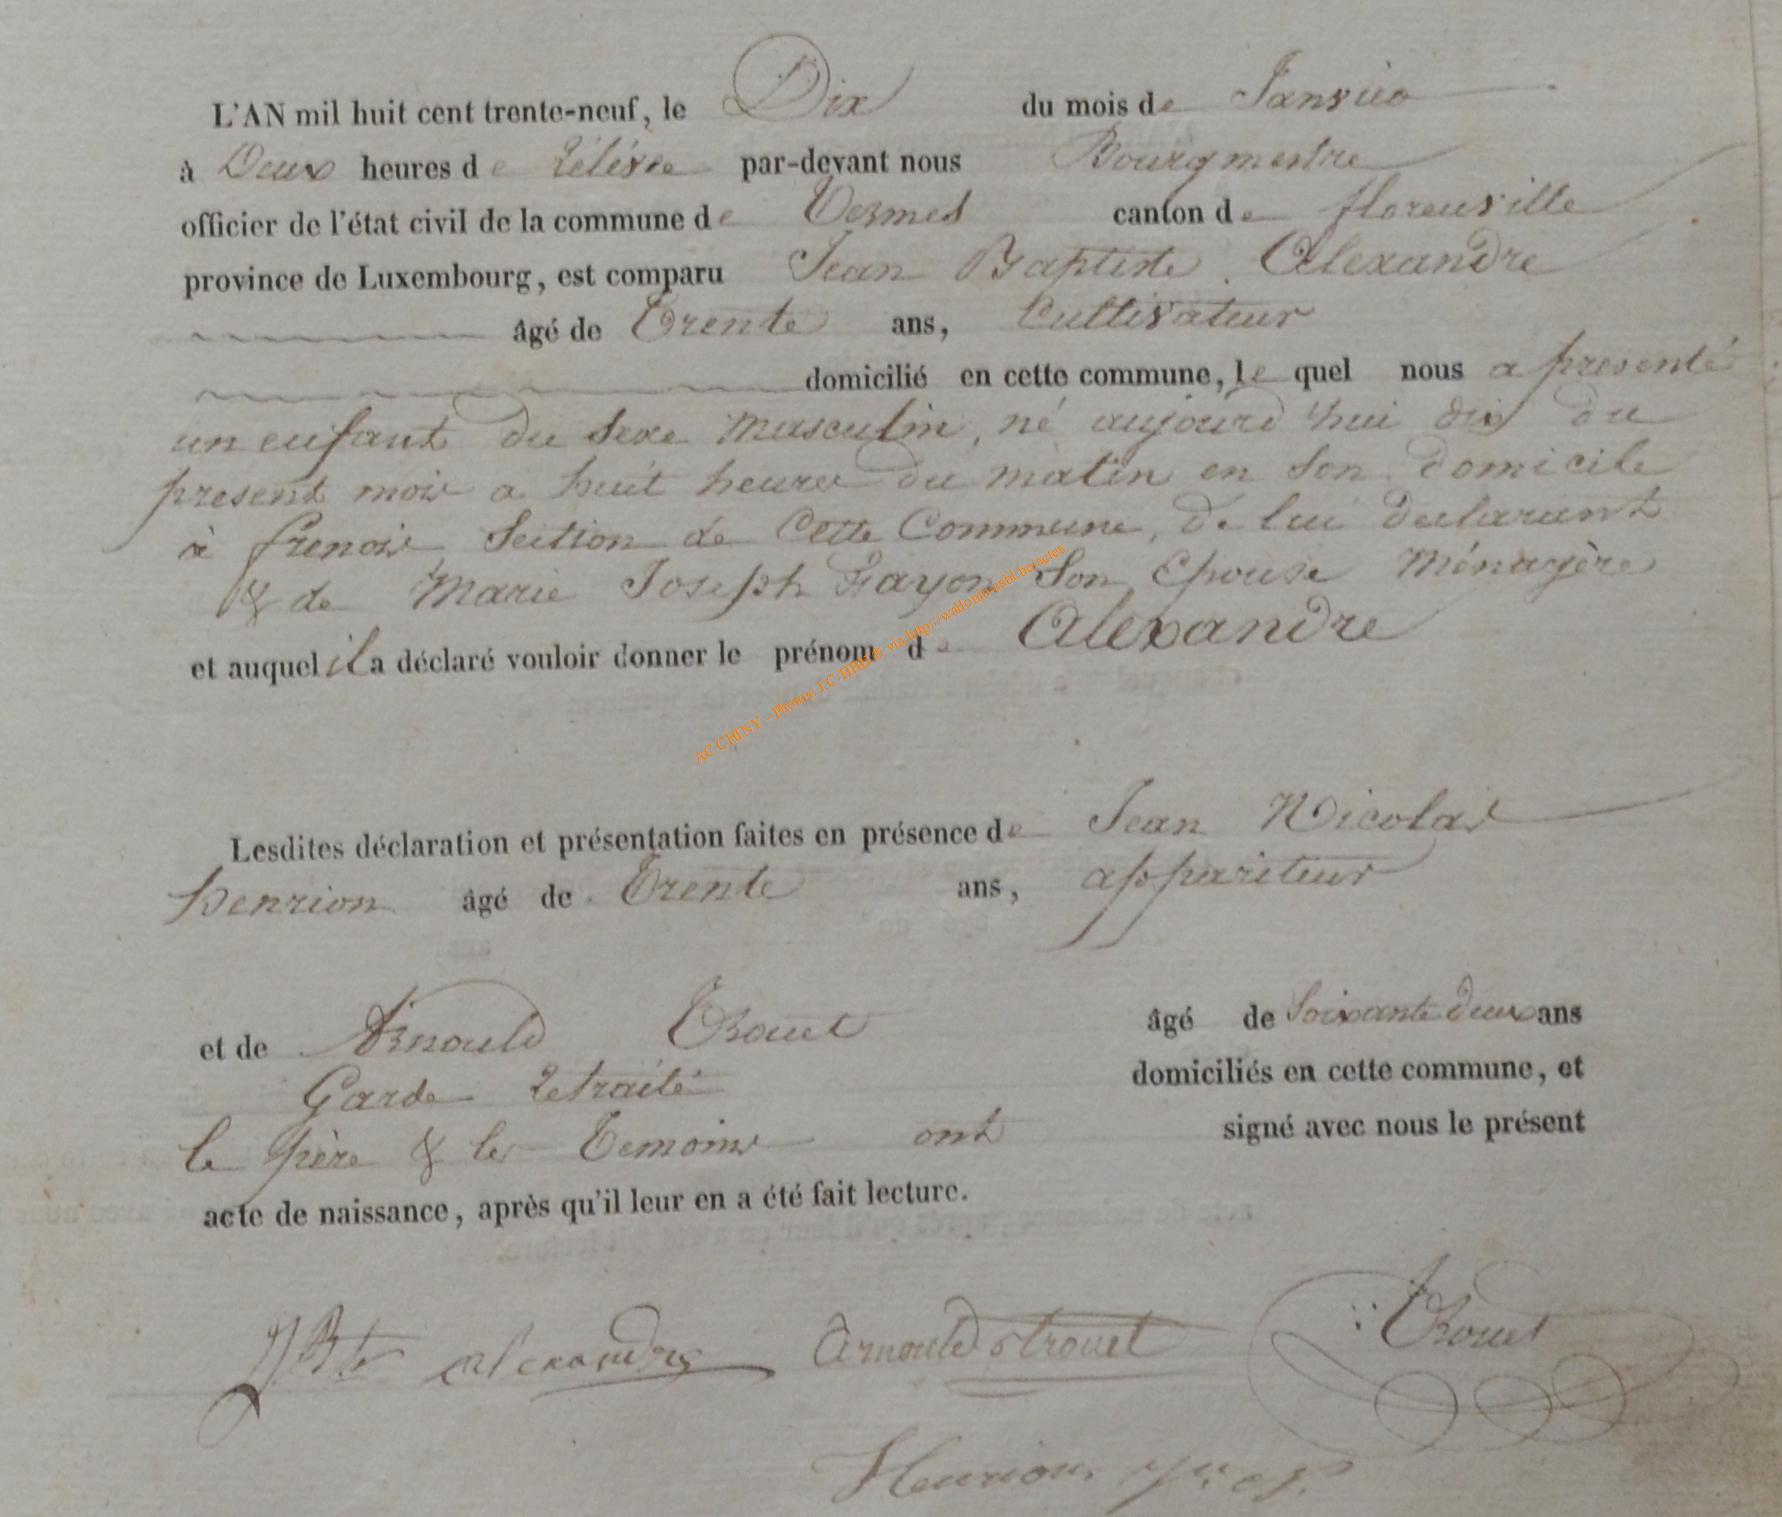 L'AN mil huit cent trente-neuf, le Dix du mois de Janvier
à Deux heures de rélévée par-devant nous Bourgmestre
officier de l'état civil de la commune de Termes canton de florenville
province de Luxembourg, est comparu Jean Baptiste Alexandre
âgé de Trente ans, Cultivateur
domicilié en cette commune, le quel nous a presenté
un enfant du Sexe Masculin, né aujourd'hui dix du
present mois a huit heures du matin en Son domicile
à frenois Section de Cette Commune, de lui declarant
& de Marie Joseph Gayon Son Epouse Ménagère
et auquel il a déclaré vouloir donner le prénom de Alexandre
AC CHINY - Photos J.C/HBH/F via http://wallonia-asbl.be/actes
Lesdites déclaration et présentation faites en présence de Jean Nicolas
henrion âgé de Trente ans, appariteur
et de Arnould Trouet âgé de Soixante deux ans
Garde retraité domiciliés en cette commune, et
le père & les Temoins ont signé avec nous le présent
acte de naissance, après qu'il leur en a été fait lecture.
JBte alexandre Arnould trouet Trouet
Henrion